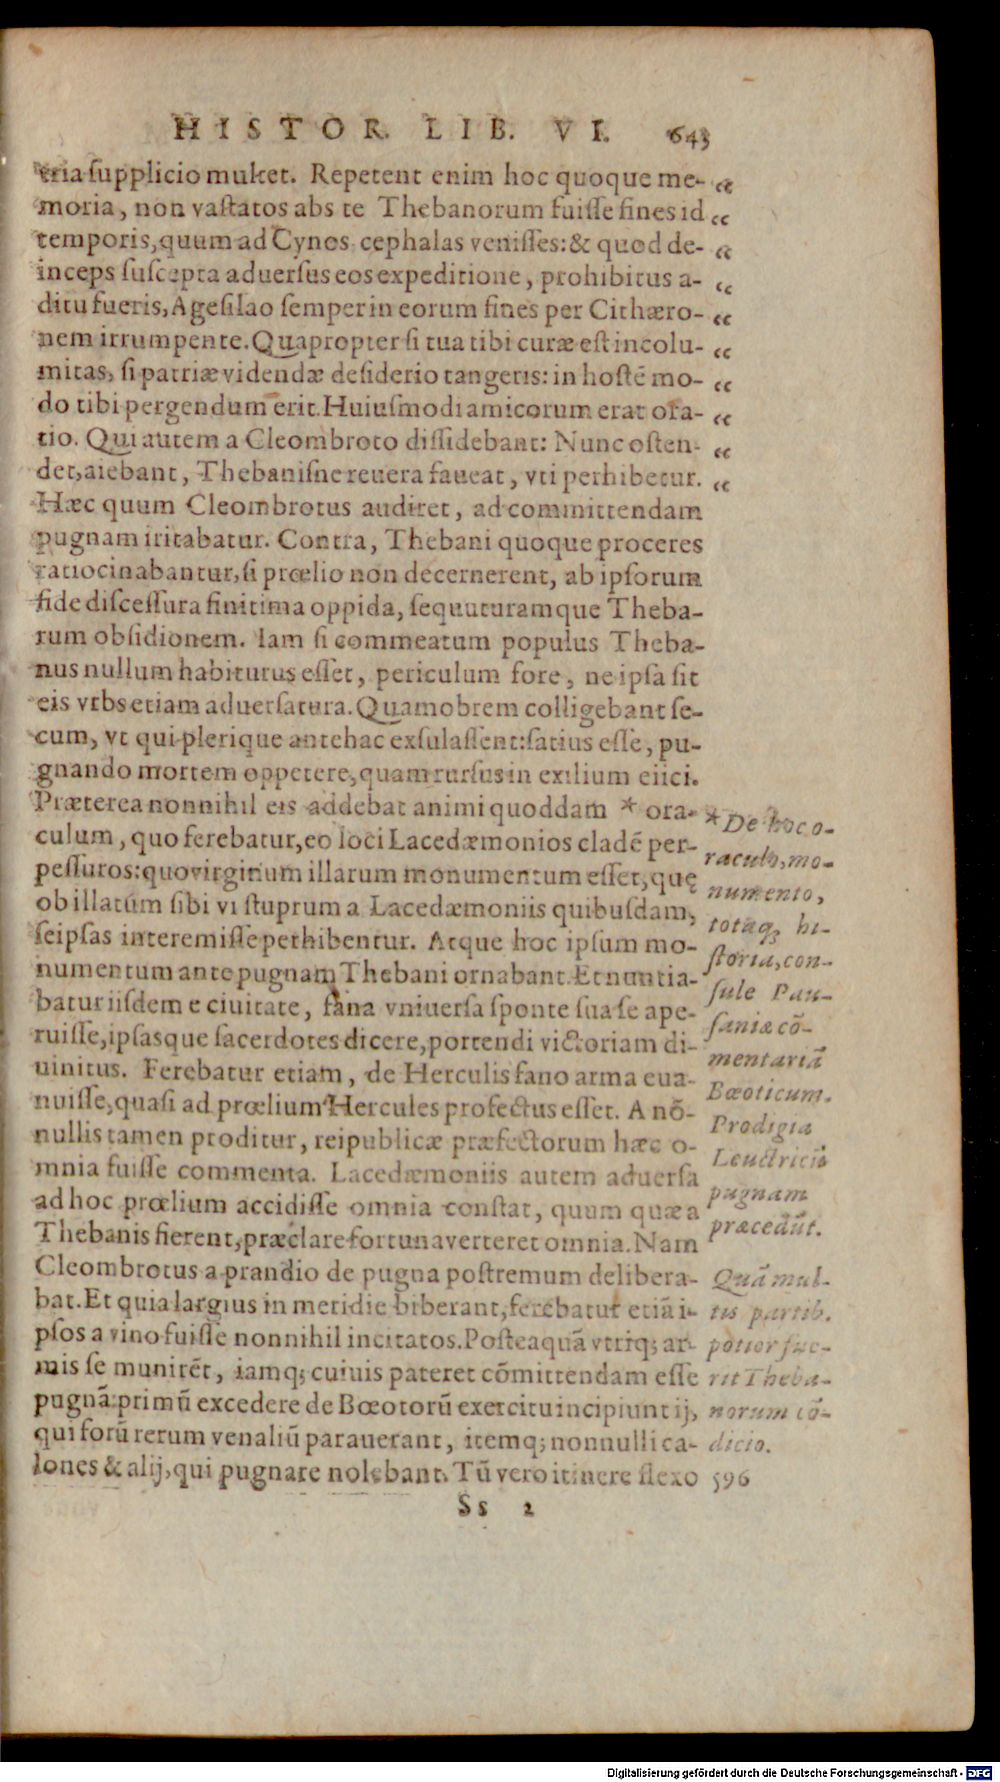 HISTOR. LIB. VI. 643
tria supplicio mulcet. Repetent enim hoc quoque me- “
moria, non vastatos abs te Thebanorum fuisse fines id “
temporis, quum ad Cynos cephalas venisses: & quod de- “
inceps suscepta aduersus eos expeditione, prohibitus a- “
ditu fueris, Agesilao semper in eorum fines per Cithæro- “
nem irrumpente. Quapropter si tua tibi curæ est incolu- “
mitas, si patriæ videndæ desiderio tangeris: in hostē mo- “
do tibi pergendum erit. Huiusmodi amicorum erat ora- “
tio. Qui autem a Cleombroto dissidebant: Nunc osten- “
det, aiebant, Thebanisne reuera faueat, vti perhibetur. “
Hæc quum Cleombrotus audiret, ad committendam
pugnam iritabatur. Contra, Thebani quoque proceres
ratiocinabantur, si prœlio non decernerent, ab ipsorum
fide discessura finitima oppida, sequuturamque Theba-
rum obsidionem. Iam si commeatum populus Theba-
nus nullum habiturus esset, periculum fore, ne ipsa sit
eis vrbs etiam aduersatura. Quamobrem colligebant se-
cum, vt qui plerique antehac exsulassent: satius esse, pu-
gnando mortem oppetere, quam rursus in exilium eiici.
Præterea nonnihil eis addebat animi quoddam * ora-
culum, quo ferebatur, eo loci Lacedæmonios cladē per-
pessuros: quo virginum illarum monumentum esset, quę
ob illatum sibi vi stuprum a Lacedæmoniis quibusdam,
seipsas interemisse perhibentur. Atque hoc ipsum mo-
numentum ante pugnam Thebani ornabant. Et nuntia-
batur iisdem e ciuitate, fana vniuersa sponte sua se ape-
ruisse, ipsasque sacerdotes dicere, portendi victoriam di-
uinitus. Ferebatur etiam, de Herculis fano arma eua-
nuisse, quasi ad prœlium Hercules profectus esset. A nō-
nullis tamen proditur, reipublicæ præfectorum hæc o-
mnia fuisse commenta. Lacedæmoniis autem aduersa
ad hoc prœlium accidisse omnia constat, quum quæ a
Thebanis fierent, præclare fortuna verteret omnia. Nam
Cleombrotus a prandio de pugna postremum delibera-
bat. Et quia largius in meridie biberant, ferebatur etiā i-
psos a vino fuisse nonnihil incitatos. Posteaquā vtriq; ar-
mis se munirēt, iamq; cuiuis pateret cōmittendam esse
pugnā: primū excedere de Bœotorū exercitu incipiunt ij,
qui forū rerum venaliū parauerant, itemq; nonnulli ca-
lones & alij, qui pugnare nolebant. Tū vero itinere flexo
* De hoc o-
raculo, mo-
numento,
totaq; hi-
storia, con-
sule Pau-
saniæ cō-
mentariū
Bœoticum.
Prodigia
Leuctricā
pugnam
præcedūt.
Quā mul-
tis partib.
potior fue-
rit Theba-
norum cō-
dicio.
596
Ss 2
Digitalisierung gefördert durch die Deutsche Forschungsgemeinschaft - DFG